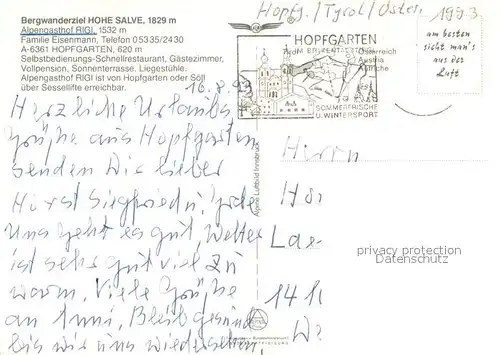 Bergwanderziel HOHE SALVE, 1829 m
Alpengasthof RIGI, 1532 m
Familie Eisenmann, Telefon 05335/2430
A-6361 HOPFGARTEN, 620 m
Selbstbedienungs-Schnellrestaurant, Gästezimmer,
Vollpension, Sonnenterrasse. Liegestühle.
Alpengasthof RIGI ist von Hopfgarten oder Söll
über Sessellifte erreichbar.
16.8.93
Herzliche Urlaubs
grüße aus Hopfgarten
senden Dir lieber
Horst Siegfried u.
Uns geht es gut, Wetter
ist sehr gut viel zu
warm. Viele Grüße
an Bleib gesund
bis wir uns wiedersehen.
Hopfg./Tyrol/Österr.
1993
HOPFGARTEN
IM BRIXENTAL
SOMMERFRISCHE
U. WINTERSPORT
Österreich
Austria
am besten
sieht man's
aus der
Luft
Alpine Luftbild Innsbruck
Herrn
privacy protection
Datenschutz